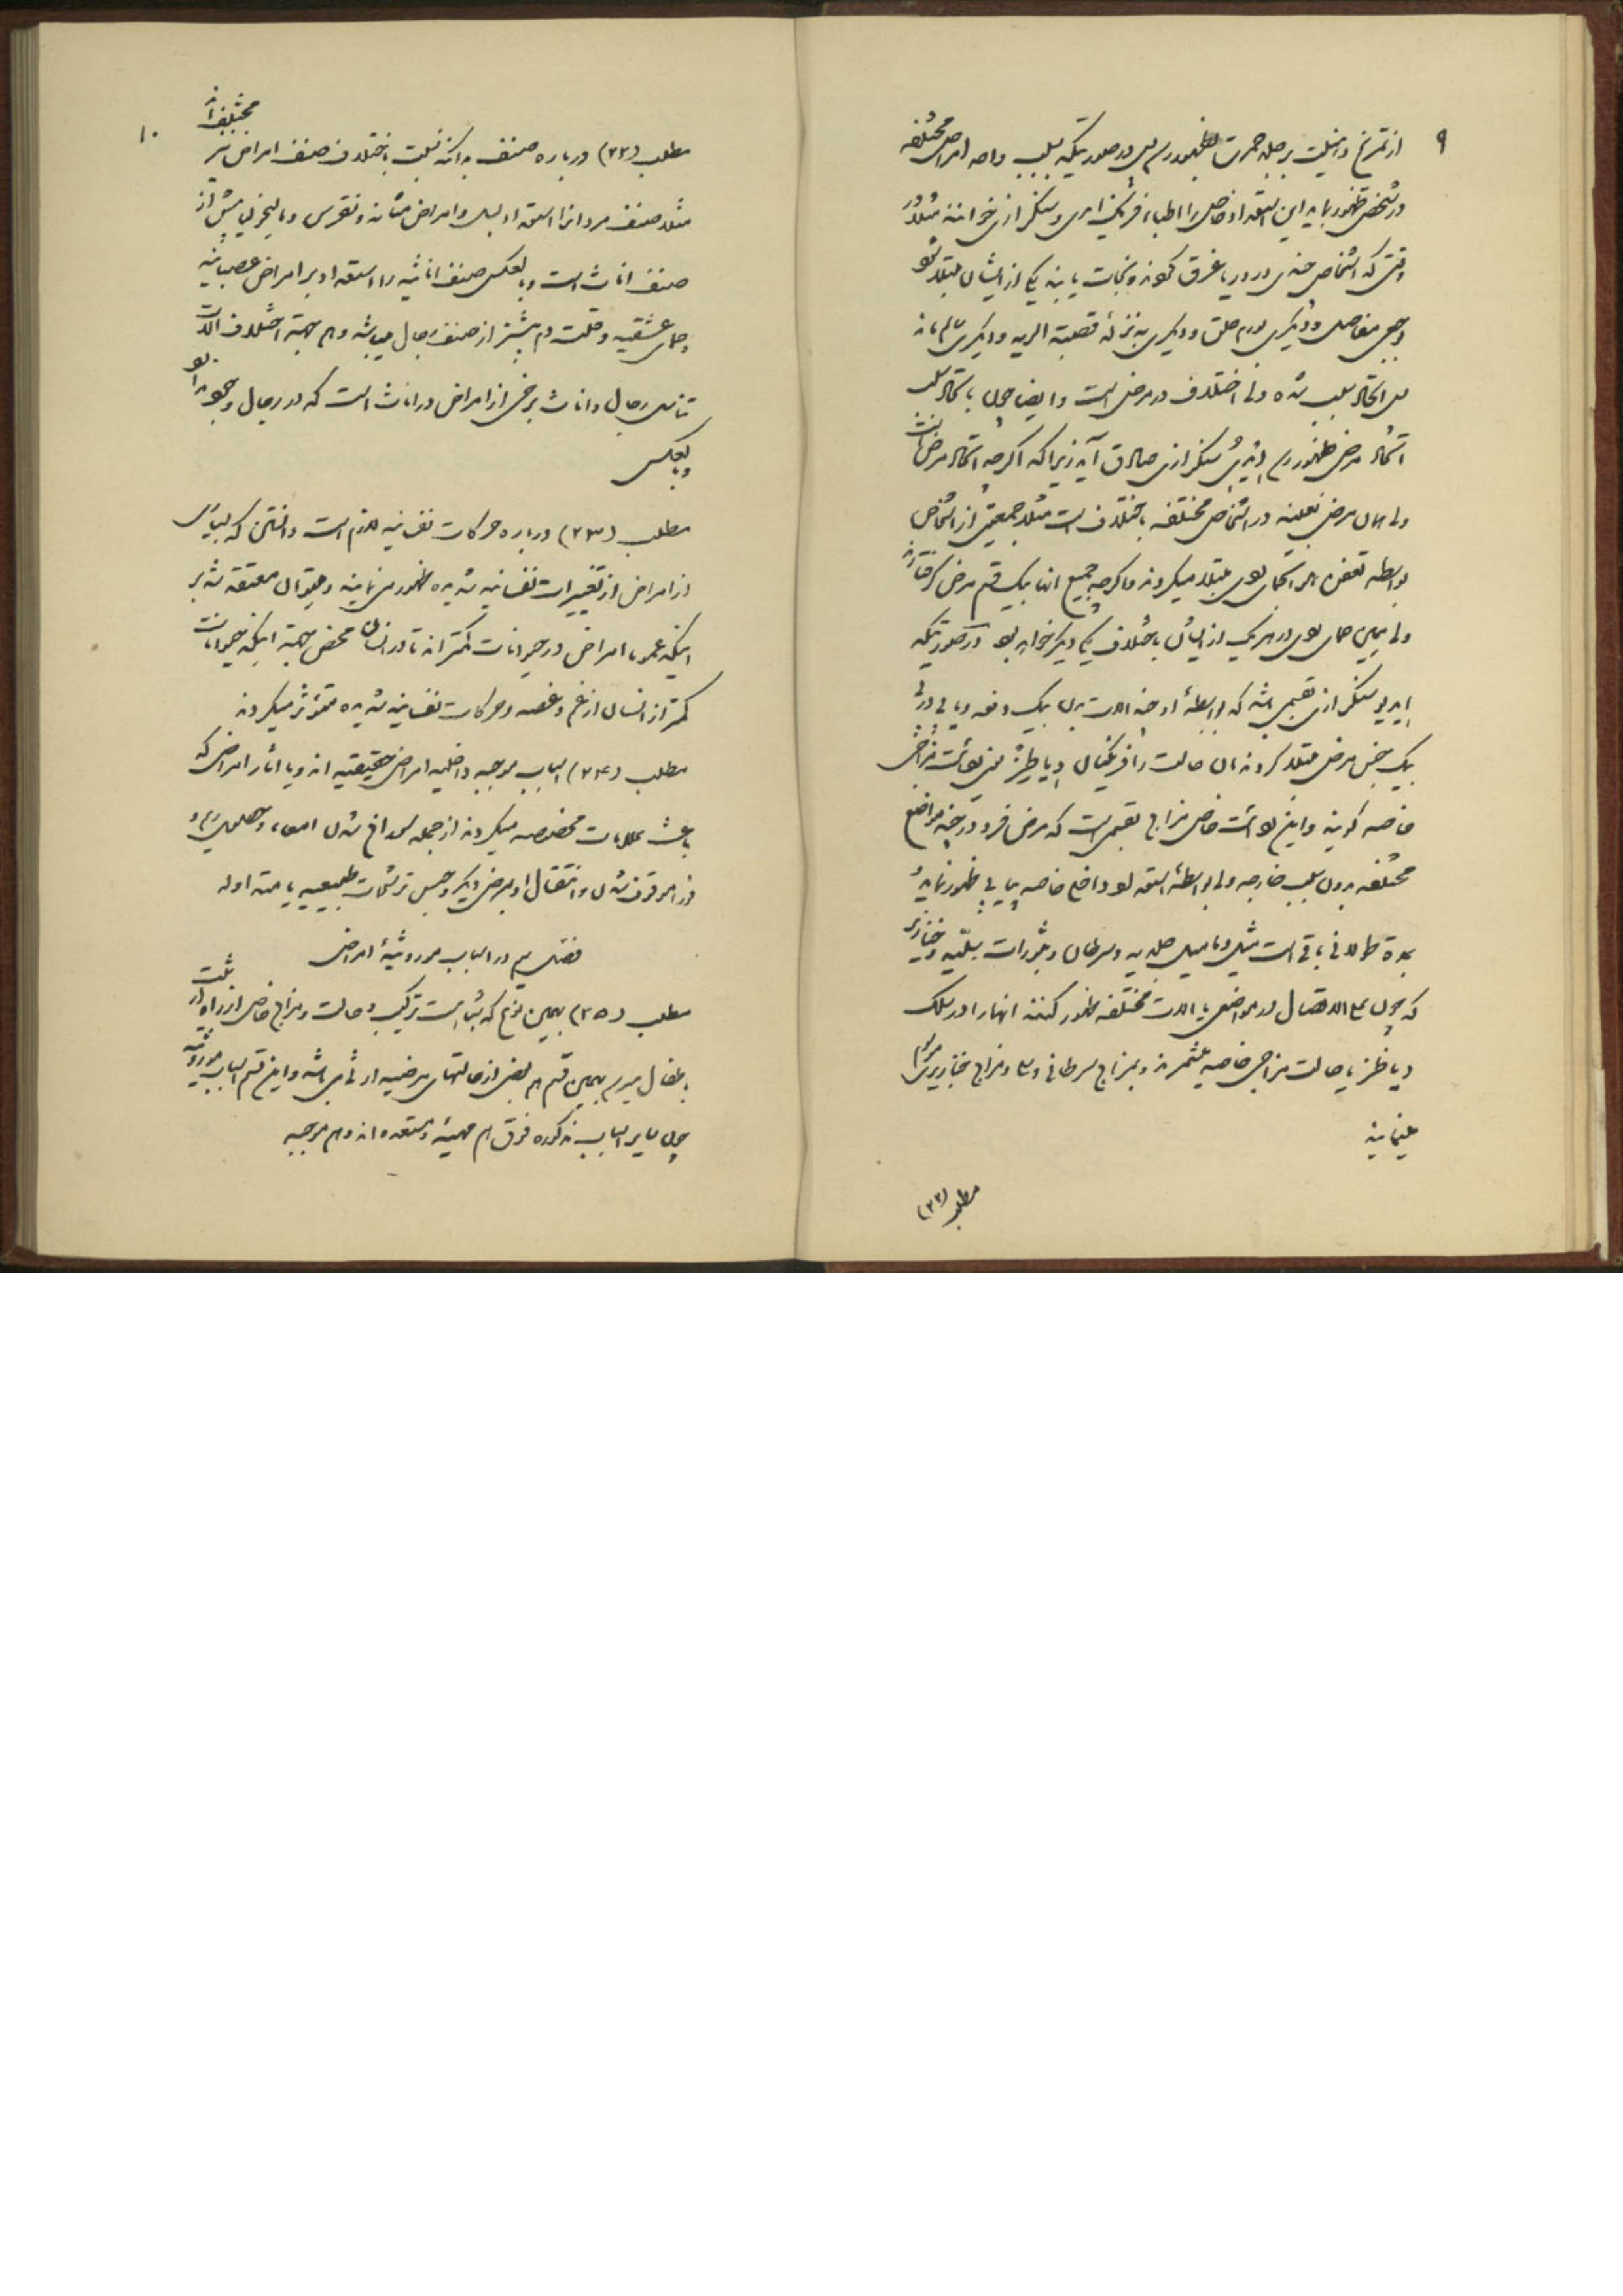 ۹
از تمریخ و انیلیت بر جلد حمرت بظهور رسد پس در صورتیکه بسبب واحد امراض مختلفه
در شخص ظهور نماید این استعداد خاص را اطباء فرنگ ایدیوسنکرازی خوانند مثلا در
وقتی که اشخاص چندی در دریا غرق گردند و نجات یابند یکی از ایشان مبتلا شود
وجع مفاصل و دیگری بورم حلق و دیگری به نزله قصبة الریه و دیگری سالم ماند
پس اتحاد سبب شده ولی اختلاف در مرض است و ایضا چون با اتحاد سبب
اتحاد مرض ظهور رسد ایدیوسنکرازی صادق آید زیرا که اگرچه اتحاد مرض است
ولی همان مرض بعینه در اشخاص مختلفه باختلاف است مثلا جمعیتی از اشخاص
بواسطه تعفن هوا بحمای نوبی مبتلا میگردند و اگرچه جمیع انها بیک قسم مرض گرفتارند
ولی همین حمای نوبی در هر یک از ایشان باختلاف یکدیگر خواهد بود در صورتیکه
ایدیوسنکرازی تقسیمی باشد که بواسطه او چند آلات بدن بیک دفعه و یا پی در پی
بیک جنس مرض مبتلا گردند ان حالت را فرنگیان دیاطز یعنی لوائت مزاجی
خاصه گویند و این لوائت خاص مزاج تقسیمی است که مرض فرود در چند مواضع
مختلفه بدون سبب خارجه ولی بواسطه استعداد داخل خاصه پیاپی ظهور نماید و
بمدة طولانی باقی است مثل دمامیل جلدیه و سرطان و بثورات سلیه و خنازیر
که چون علی الاتصال در مواضعی یا آلات مختلفه ظهور کنند انها را در سلک
دیاطز یا حالت مزاجی خاصه شمرند و بمزاج سرطانی و سل و مزاج خنازیری موسوم
مینمایند
مطلب (۲۲)
۱۰
مطلب (۲۲) درباره صنف بدانکه نسبت باختلاف صنف امراض نیز مختلف اند
مثلا صنف مردانرا استعداد بسل و امراض مثانه و نقرس و مالیخولیا بیش از
صنف اناث است و بالعکس صنف اناثیه را استعداد بر امراض عصبانیه
و حمای عشقیه و قلت دم بیشتر از صنف رجال میباشد و هم بجهة اختلاف آلات
تناسل رجال و اناث برخی از امراض در اناث است که در رجال وجود ندارد
و بالعکس
مطلب (۲۳) درباره حرکات نفسانیه لازم است دانستن که بسیاری
از امراض از تغییرات نفسانیه شدیده ظهور می نمایند و میتوان معتقد شد بر
اینکه عموما امراض در حیوانات کمتر اند تا در انسان محض بجهة اینکه حیوانات
کمتر از انسان از غم و غصه و حرکات نفسانیه شدیده متؤثر میگردند
مطلب (۲۴) اسباب موجبه داخلیه امراض حقیقیه اند و یا اثار امراضی که
باعث علامات مخصوصه میگردند از جمله سوراخ شدن امعاء و حصاهای کلیه و
ورم موقوف شدن و انتقال او بمرضی دیگر و حبس ترشحات طبیعیه یا معتاد اوله
فصل سیم در اسباب موروثیهٔ امراض
مطلب (۲۵) بهمین نوع که شباهت ترکیب و حالت و مزاج خاص از والدین
باطفال میرسد بهمین قسم هم بعضی از حالتهای مرضیه ارثی میباشد و این قسم اسباب موروثیه
چون سایر اسباب مذکوره فوق هم مهیئه و مستعده اند و هم موجبه